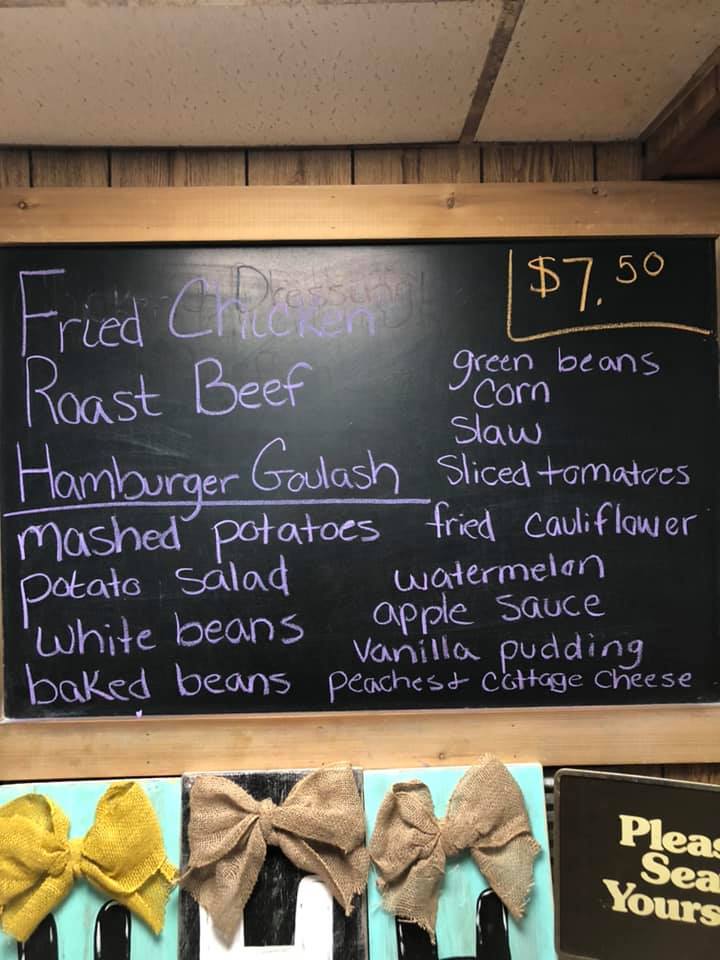 Fried Chicken
Roast Beef
Hamburger Goulash
mashed potatoes
potato salad
white beans
baked beans
$7.50
green beans
corn
slaw
Sliced tomatoes
fried cauliflower
watermelon
apple sauce
Vanilla pudding
peaches & cottage cheese
Dressing
Pleas
Sea
Yours